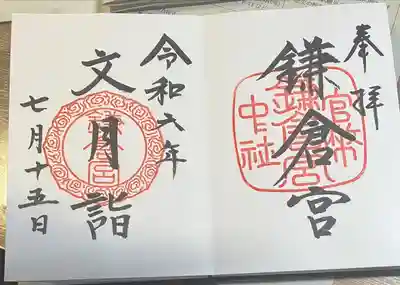 奉拝
鎌倉宮
官幣
鎌倉宮
中社
令和六年
文月詣
七月十五日